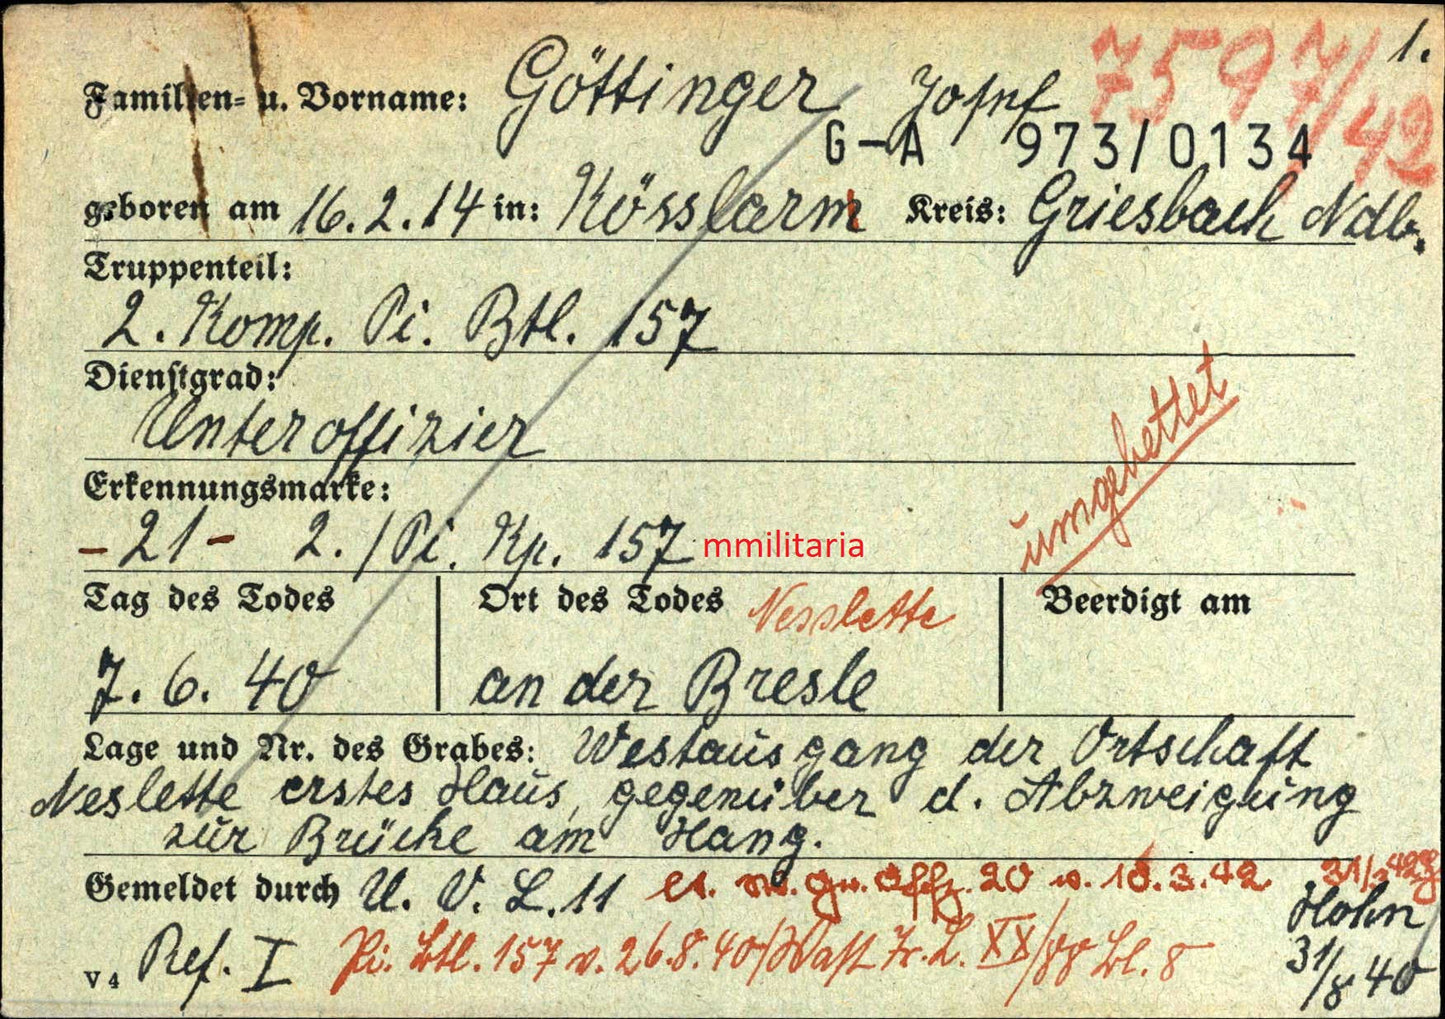 7597/42 1.
Familien- u. Vorname: Göttinger Josef
G-A 973/0134
geboren am 16.2.14 in: Kösslarn Kreis: Griesbach Ndb.
Truppenteil:
2. Komp. Pi. Btl. 157
Dienstgrad:
Unteroffizier
umgebettet
Erkennungsmarke:
-21- 2./Pi. Kp. 157 mmilitaria
Tag des Todes Ort des Todes Nesslette Beerdigt am
7.6.40 an der Bresle
Lage und Nr. des Grabes: Westausgang der Ortschaft
Neslette erstes Haus, gegenüber d. Abzweigung
zur Brücke am Hang.
Gemeldet durch U. V. L. 11 Gr. Offz. 20 v. 18.3.42
Hohn
V 4 Ref. I Pi. Btl. 157 v. 26.8.40/Wast Fr. L. XX/88 Bl. 8 31/8 40